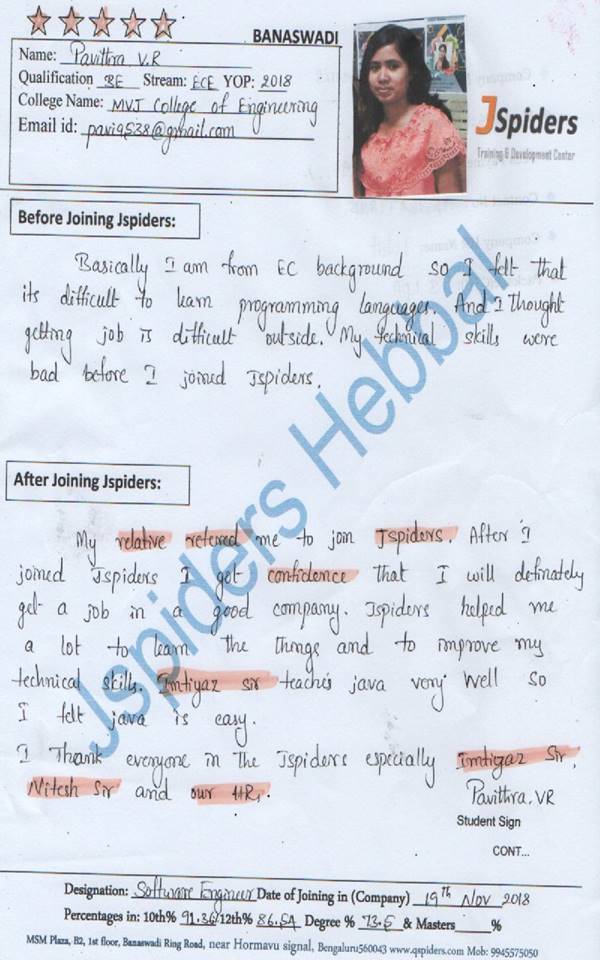 BANASWADI
Name: Pavithra V.R
Qualification BE Stream: ECE YOP: 2018
College Name: MVJ College of Engineering
Email id: pavi9538@gmail.com
JSpiders
Training & Development Center
Before Joining Jspiders:
Basically I am from EC background so I felt that
its difficult to learn programming languages. And I thought
getting job is difficult outside. My technical skills were
bad before I joined Jspiders.
Jspiders Hebbal
After Joining Jspiders:
My relative referred me to join Jspiders. After I
joined Jspiders I got confidence that I will definately
get a job in a good company. Jspiders helped me
a lot to learn the things and to improve my
technical skills. Imtiyaz sir teaches java very well so
I felt java is easy.
I Thank everyone in the Jspiders especially Imtiyaz Sir,
Nitesh Sir and our HR.
Pavithra.VR
Student Sign
CONT...
Designation: Software Engineer Date of Joining in (Company) 19th Nov 2018
Percentages in: 10th% 91.36 12th% 86.54 Degree % 73.5 & Masters %
MSM Plaza, B2, 1st floor, Banaswadi Ring Road, near Hormavu signal, Bengaluru560043 www.qspiders.com Mob: 9945575050